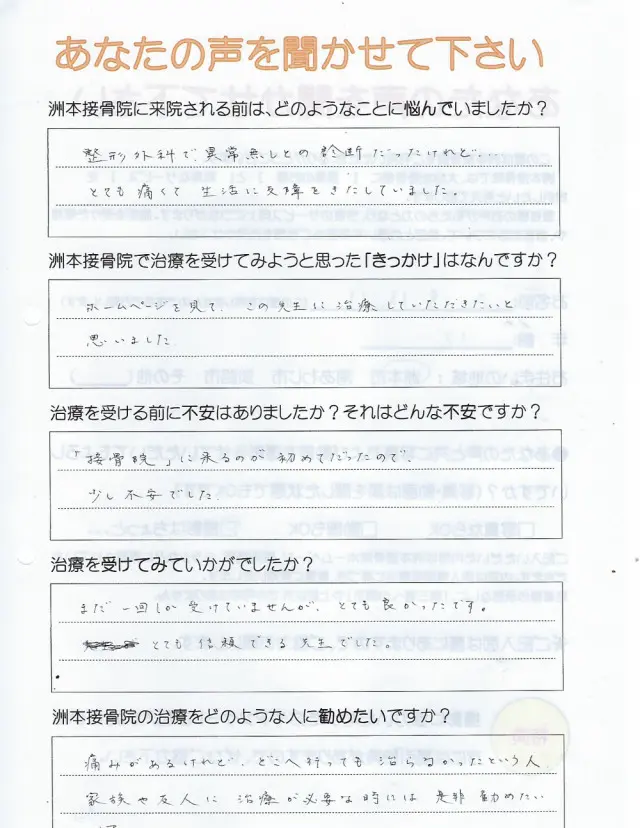 あなたの声を聞かせて下さい
洲本接骨院に来院される前は、どのようなことに悩んでいましたか？
整形外科で異常無しとの診断だったけれど…
とても痛くて生活に支障をきたしていました。
洲本接骨院で治療を受けてみようと思った「きっかけ」はなんですか？
ホームページを見て、この先生に治療していただきたいと
思いました
治療を受ける前に不安はありましたか？それはどんな不安ですか？
「接骨院」に来るのが初めてだったので、
少し不安でした
治療を受けてみていかがでしたか？
まだ一回しか受けていませんが、とても良かったです。
とても信頼できる先生でした。
洲本接骨院の治療をどのような人に勧めたいですか？
痛みがあるけれど、どこへ行っても治らなかったという人
家族や友人に治療が必要な時には是非勧めたい